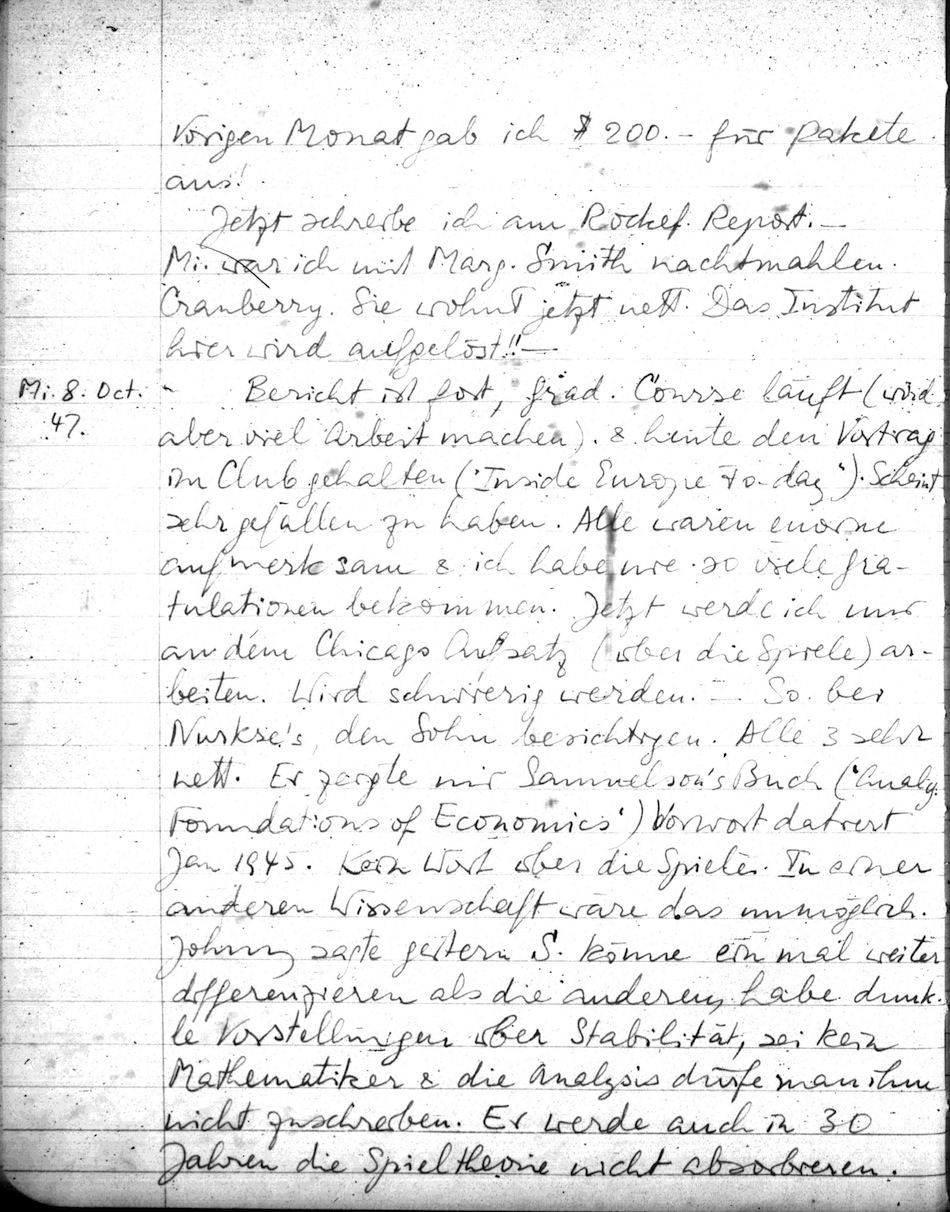 Vorigen Monat gab ich $ 200.- für Pakete
aus!
Jetzt schreibe ich am Rockef. Report. —
Mi. war ich mit Marg. Smith nachtmahlen.
Cranberry. Sie wohnt jetzt nett. Das Institut
hier wird aufgelöst!! —
Mi. 8. Oct. 47. Bericht ist fort, Grad. Course läuft (wird
aber viel Arbeit machen). & heute den Vortrag
im Club gehalten ("Inside Europe to-day"). Scheint
sehr gefallen zu haben. Alle waren enorm
aufmerksam & ich habe nie so viele Gra-
tulationen bekommen. Jetzt werde ich nur
an dem Chicago Aufsatz (über die Spiele) ar-
beiten. Wird schwierig werden. — So. bei
Nurkse's, den Sohn besichtigen. Alle 3 sehr
nett. Er zeigte mir Samuelson's Buch ('Analy.
Foundations of Economics') Vorwort datiert
Jan 1945. Kein Wort über die Spiele. In einer
anderen Wissenschaft wäre das unmöglich.
Johnny sagte gestern S. könne ein mal weiter
differenzieren als die anderen, habe dunk-
le Vorstellungen über Stabilität, sei kein
Mathematiker & die Analysis dürfe man ihm
nicht zuschreiben. Er werde auch in 30
Jahren die Spieltheorie nicht absorbieren.